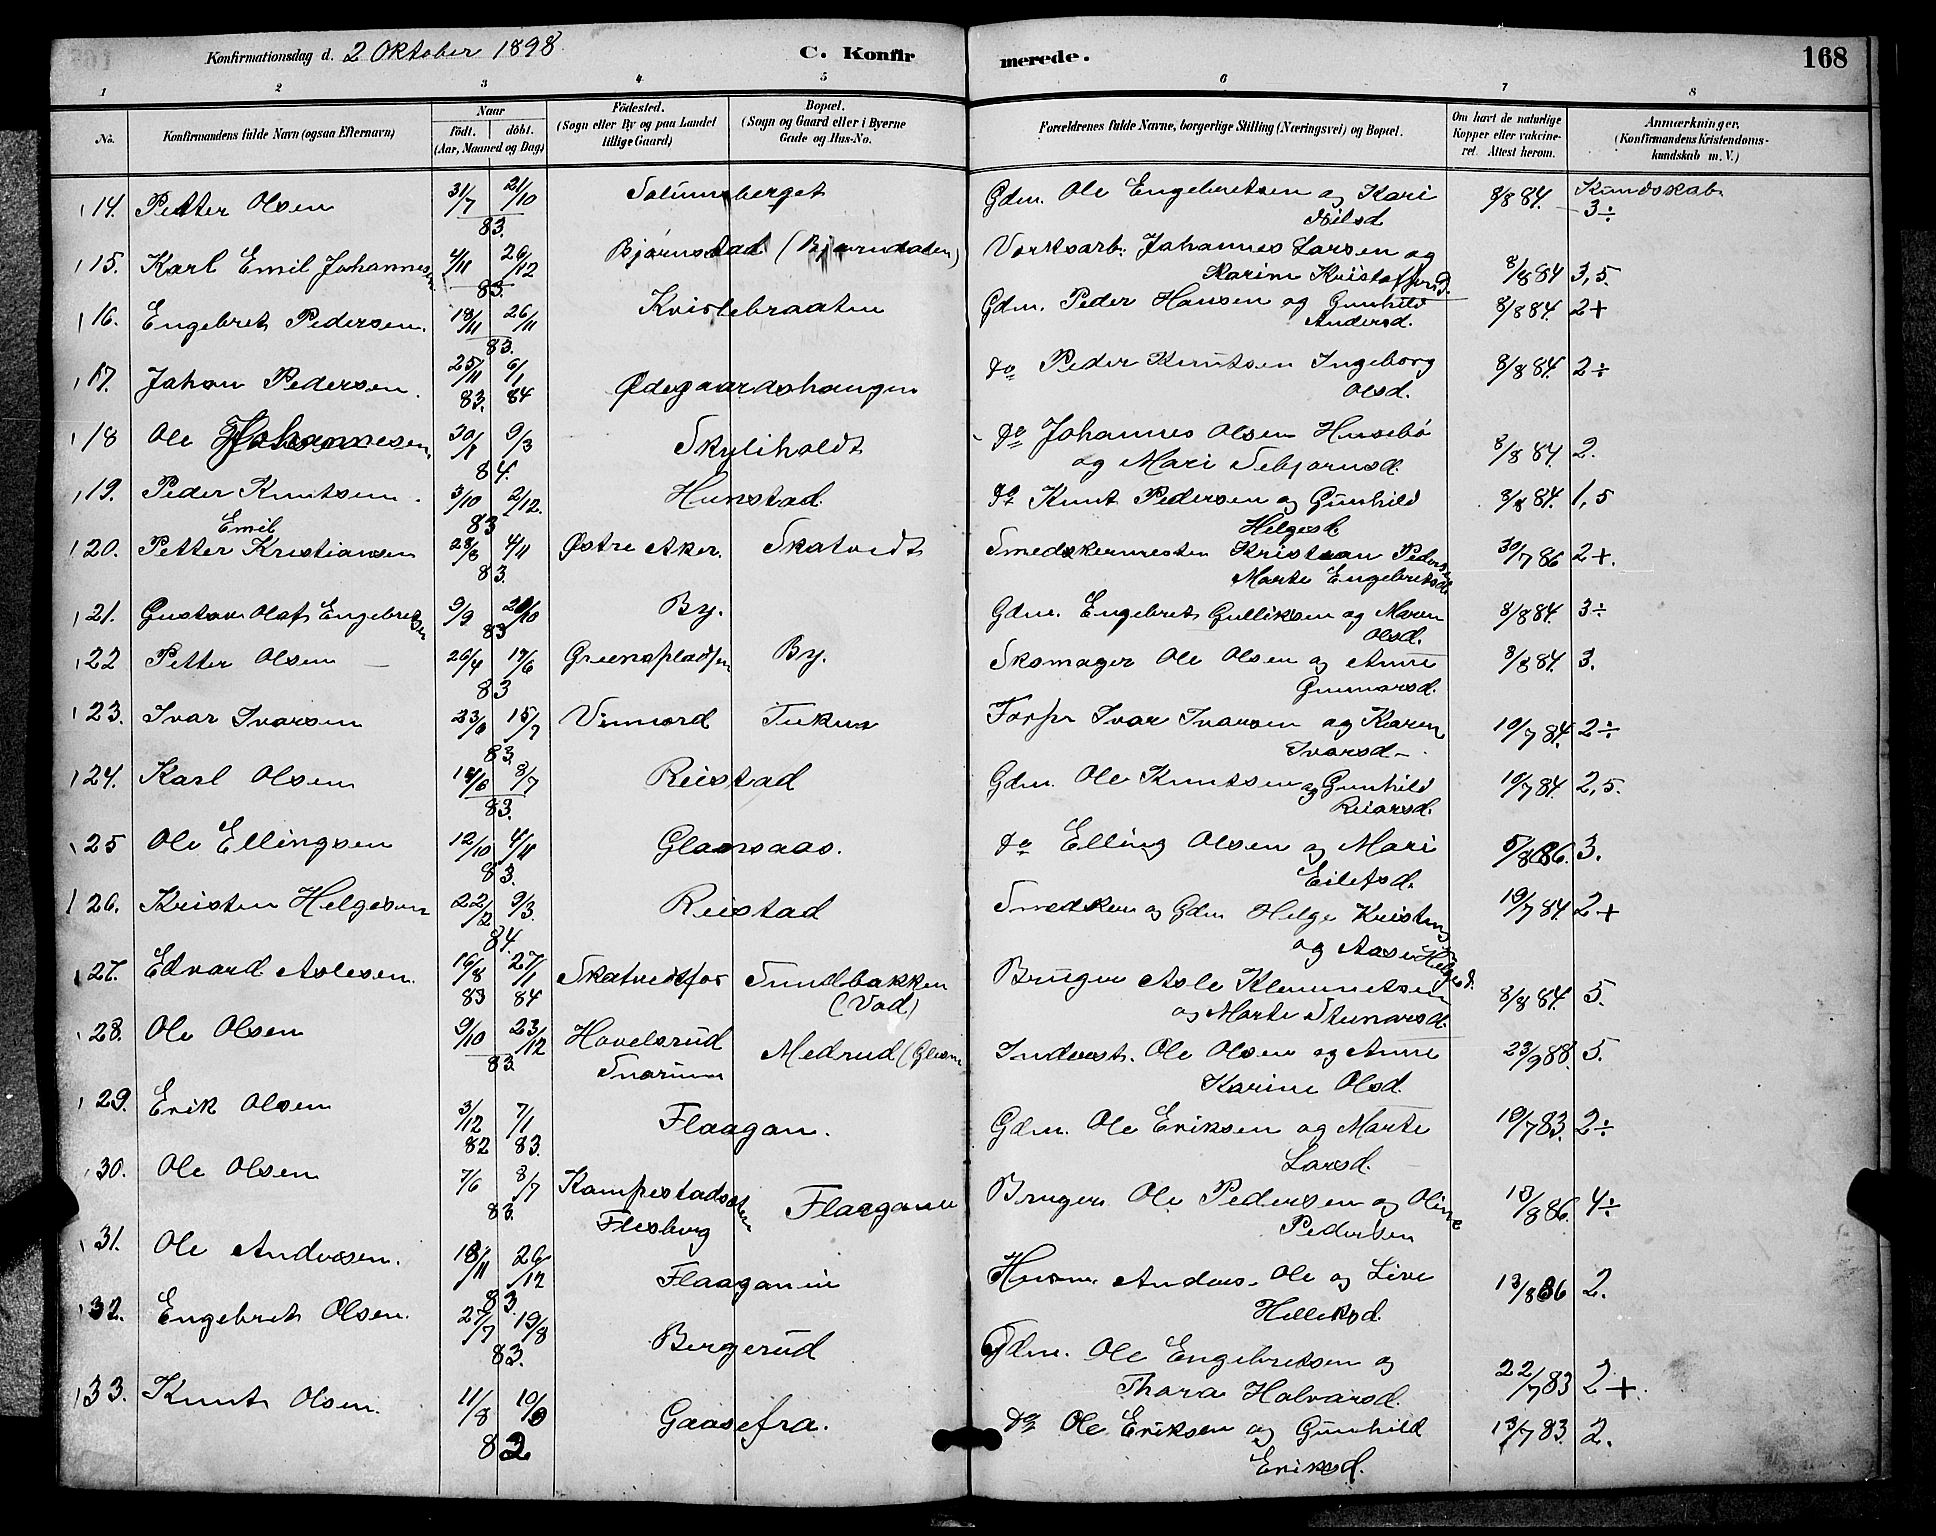 Konfirmationsdag d. 2 Oktober 1898. C. Konfirmerede. 168
1 2 3 4 5 6 7 8
No. Konfirmandens fulde Navn (ogsaa Efternavn) Naar født. døbt. (Aar, Maaned og Dag) Födested. (Sogn eller By og paa Landet tillige Gaard) Bopæl. (Sogn og Gaard eller i Byerne Gade og Hus-No. Forældrenes fulde Navne, borgerlige Stilling (Næringsvei) og Bopæl. Om havt de naturlige Kopper eller vakcineret. Attest herom. Anmærkninger. (Konfirmandens Kristendomskundskab m. V.)
14. Petter Olsen 31/7 21/10 83. Solumsberget Gdm. Ole Engebretsen og Kari Nilsd. 8/8 84. Kundskab 3÷
15. Karl Emil Johannesen 4/11 26/12 83. Bjørnstad (Bjørndalen) Verksarb. Johannes Larsen og Karine Kristoffersd. 8/8 84 3,5.
16. Engebret Pedersen. 18/11 26/11 83. Kvistebraaten Gdm. Peder Hansen og Gunhild Andersd. 8/8 84. 2+
17. Johan Pedersen. 25/11 83. 6/1 84 Ødegaardshaugen do Peder Knutsen Ingeborg Olsd. 8/8 84. 2÷
18 Ole Johannesen. 30/1 9/3 84. Skyliholdt do Johannes Olsen Husebø og Mari Sebjørnsd. 8/8 84. 2.
19. Peder Knutsen. 3/10 2/12. 83 Hunstad. do Knut Pedersen og Gunhild Helgesd. 8/8 84. 1,5
20. Petter Emil Kristiansen 28/8 4/11 83. Østre Aker. Skatvedt Smedskermesten Kristian Pedersen Marte Engebretsd. 30/7 86 2+.
21. Gustav Olaf Engebretsen 9/9 20/10 83 By. Gdm. Engebret Gulliksen og Maren Olsd. 8/8 84. 3÷
22 Petter Olsen 26/4 17/6 83 Greenspladsen By. Skomager Ole Olsen og Anne Gunnarsd. 8/8 84. 3.
23. Ivar Ivarsen 23/6 15/7 83. Vinnord Ivar Ivarsen og Karen Ivarsd. 10/7 84. 2÷
24. Karl Olsen 14/6 8/7 83. Reistad Gdm. Ole Knutsen og Gunhild Reiarsd. 10/7 84. 2,5.
25 Ole Ellingsen 12/10 4/11 83. Glansaas. do Elling Olsen og Mari Eilefsd. 5/8 86. 3.
26. Kristen Helgesen 22/2 9/3. 84. Reistad Smedsven og Gdm Helge Kristens og Aase Helgesd. 10/7 84. 2+
27. Edvard Aslesen. 16/8 83 27/1 84 Skatvedtfos Sundbakken (Vad) Bruger Asle Klemmetsen og Marte Steinarsd. 8/8 84. 5.
28. Ole Olsen 9/10 23/12 83. Hovelsrud Snarum Medrud Inderst. Ole Olsen og Anne Karine Olsd. 23/9 88. 5.
29. Erik Olsen 3/12 82 7/1 83. Flaagan. Gdm. Ole Eriksen og Marte Larsd. 10/7 83. 2÷
30. Ole Olsen 7/6 8/7 83. Kampestadseten Flesberg Flaagan Bruger Ole Pedersen og Oline Pedersen 13/8 86. 4÷
31. Ole Andersen. 18/11 26/12 83. Flaagan Husm. Anders. Ole og Live Helliksd. 13/8 86 2.
32. Engebret Olsen. 27/7 19/8 83. Bergerud Gdm. Ole Engebretsen og Thora Halvarsd. 22/7 83 2+.
33. Knut Olsen. 11/8 10/9 82 Gaasefra. do Ole Eriksen og Gunhild Eriksd. 13/7 83. 2.